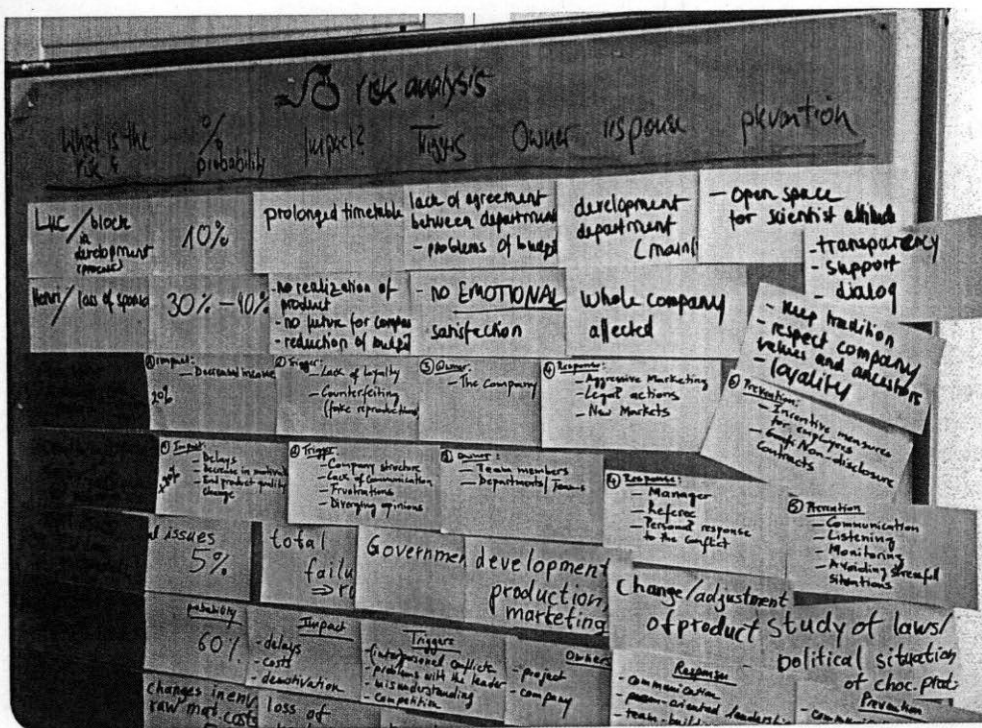 risk analysis
What is the risk
% probability
Impact?
Triggers
Owner
response
prevention
Luc / block
in
development
(process)
10%
prolonged timetable
lack of agreement
between department
- problems of budget
development
department
(main)
- open space
for scientist attitude
- transparency
- support
- dialog
Henri / loss of sponso
30% - 40%
- no realization of
product
- no future for compan
- reduction of budget
- no EMOTIONAL
satisfaction
Whole company
affected
- keep tradition
- respect company
values and ancestors
- loyality
① Impact:
- Decreased income
20%
② Trigger:
- Lack of loyalty
- Counterfeiting
(fake reproductions
③ Owner:
- The company
④ Response:
- Aggressive Marketing
- Legal actions
- New Markets
⑤ Prevention:
- Incentive measures
for employees
- Non-disclosure
contracts
① Impact:
- Delays
- Decrease in motivati
- End product quality
change
② Trigger:
- Company structure
- Lack of communication
- Frustrations
- Diverging opinions
③ Owner:
- Team members
- Departments / Teams
④ Response:
- Manager
- Referee
- Personal response
to the conflict
⑤ Prevention
- Communication
- Listening
- Monitoring
- Avoiding stressful
situations
issues
5%
total
failu
Governmen
development
production,
marketing
change/adjustment
of product
study of laws/
political situation
of choc. prod.
probability
60%
Impact
- delays
- costs
- demotivation
Triggers
- interpersonal conflicts
- problems with the leader
- misunderstanding
- competition
Owners
- project
- company
Responses
- communication
- person-oriented leadershi
- team-build
Prevention
changes in env.
raw mat. costs
loss of